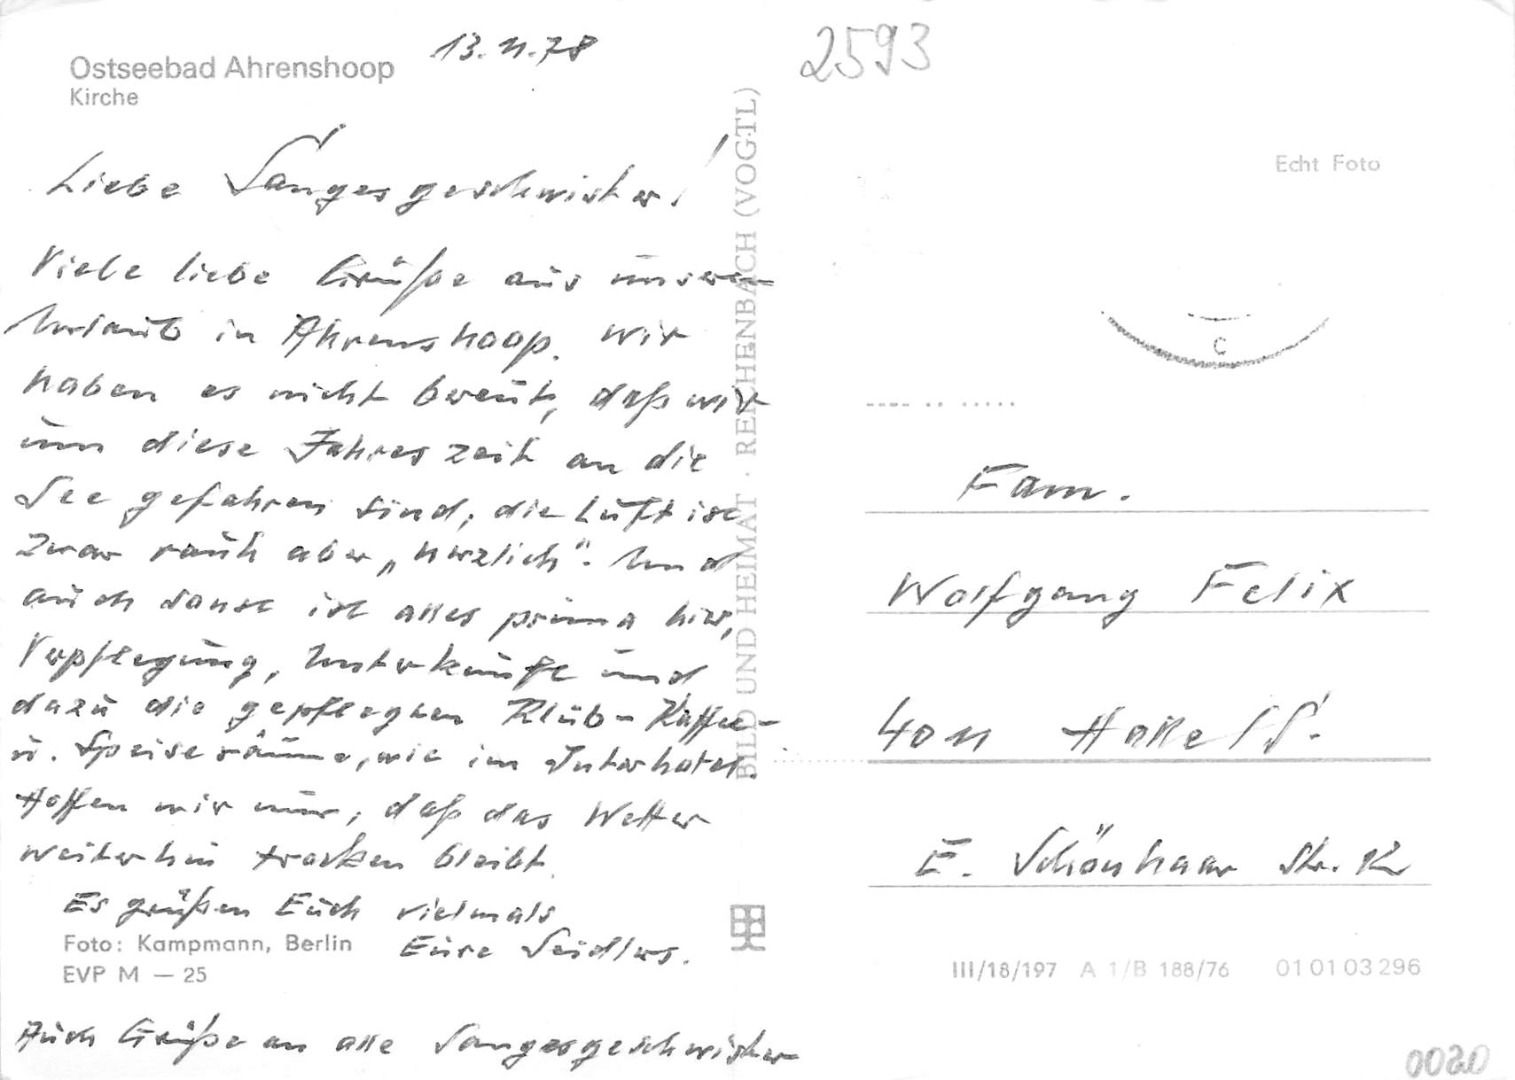 Ostseebad Ahrenshoop
Kirche
13.11.78
2593
Liebe Sangesgeschwister!
Viele liebe Grüße aus unserem
Urlaub in Ahrenshoop. Wir
haben es nicht bereut, daß wir
um diese Jahreszeit an die
See gefahren sind, die Luft ist
zwar rauh aber „herzlich“. Und
auch sonst ist alles prima hier,
Verpflegung, Unterkunft und
dazu die gepflegten Klub-Kaffee-
u. Speiseräume, wie im Interhotel.
Hoffen wir nur, daß das Wetter
weiterhin trocken bleibt.
Es grüßen Euch vielmals
Eure Seidlers.
Foto: Kampmann, Berlin
EVP M — 25
Auch Grüße an alle Sangesgeschwister
BILD UND HEIMAT · REICHENBACH (VOGTL)
Echt Foto
C
Fam.
Wolfgang Felix
4011 Halle/S.
E. Schönhaar Str. 12
III/18/197 A 1/B 188/76 01 01 03 296
0020